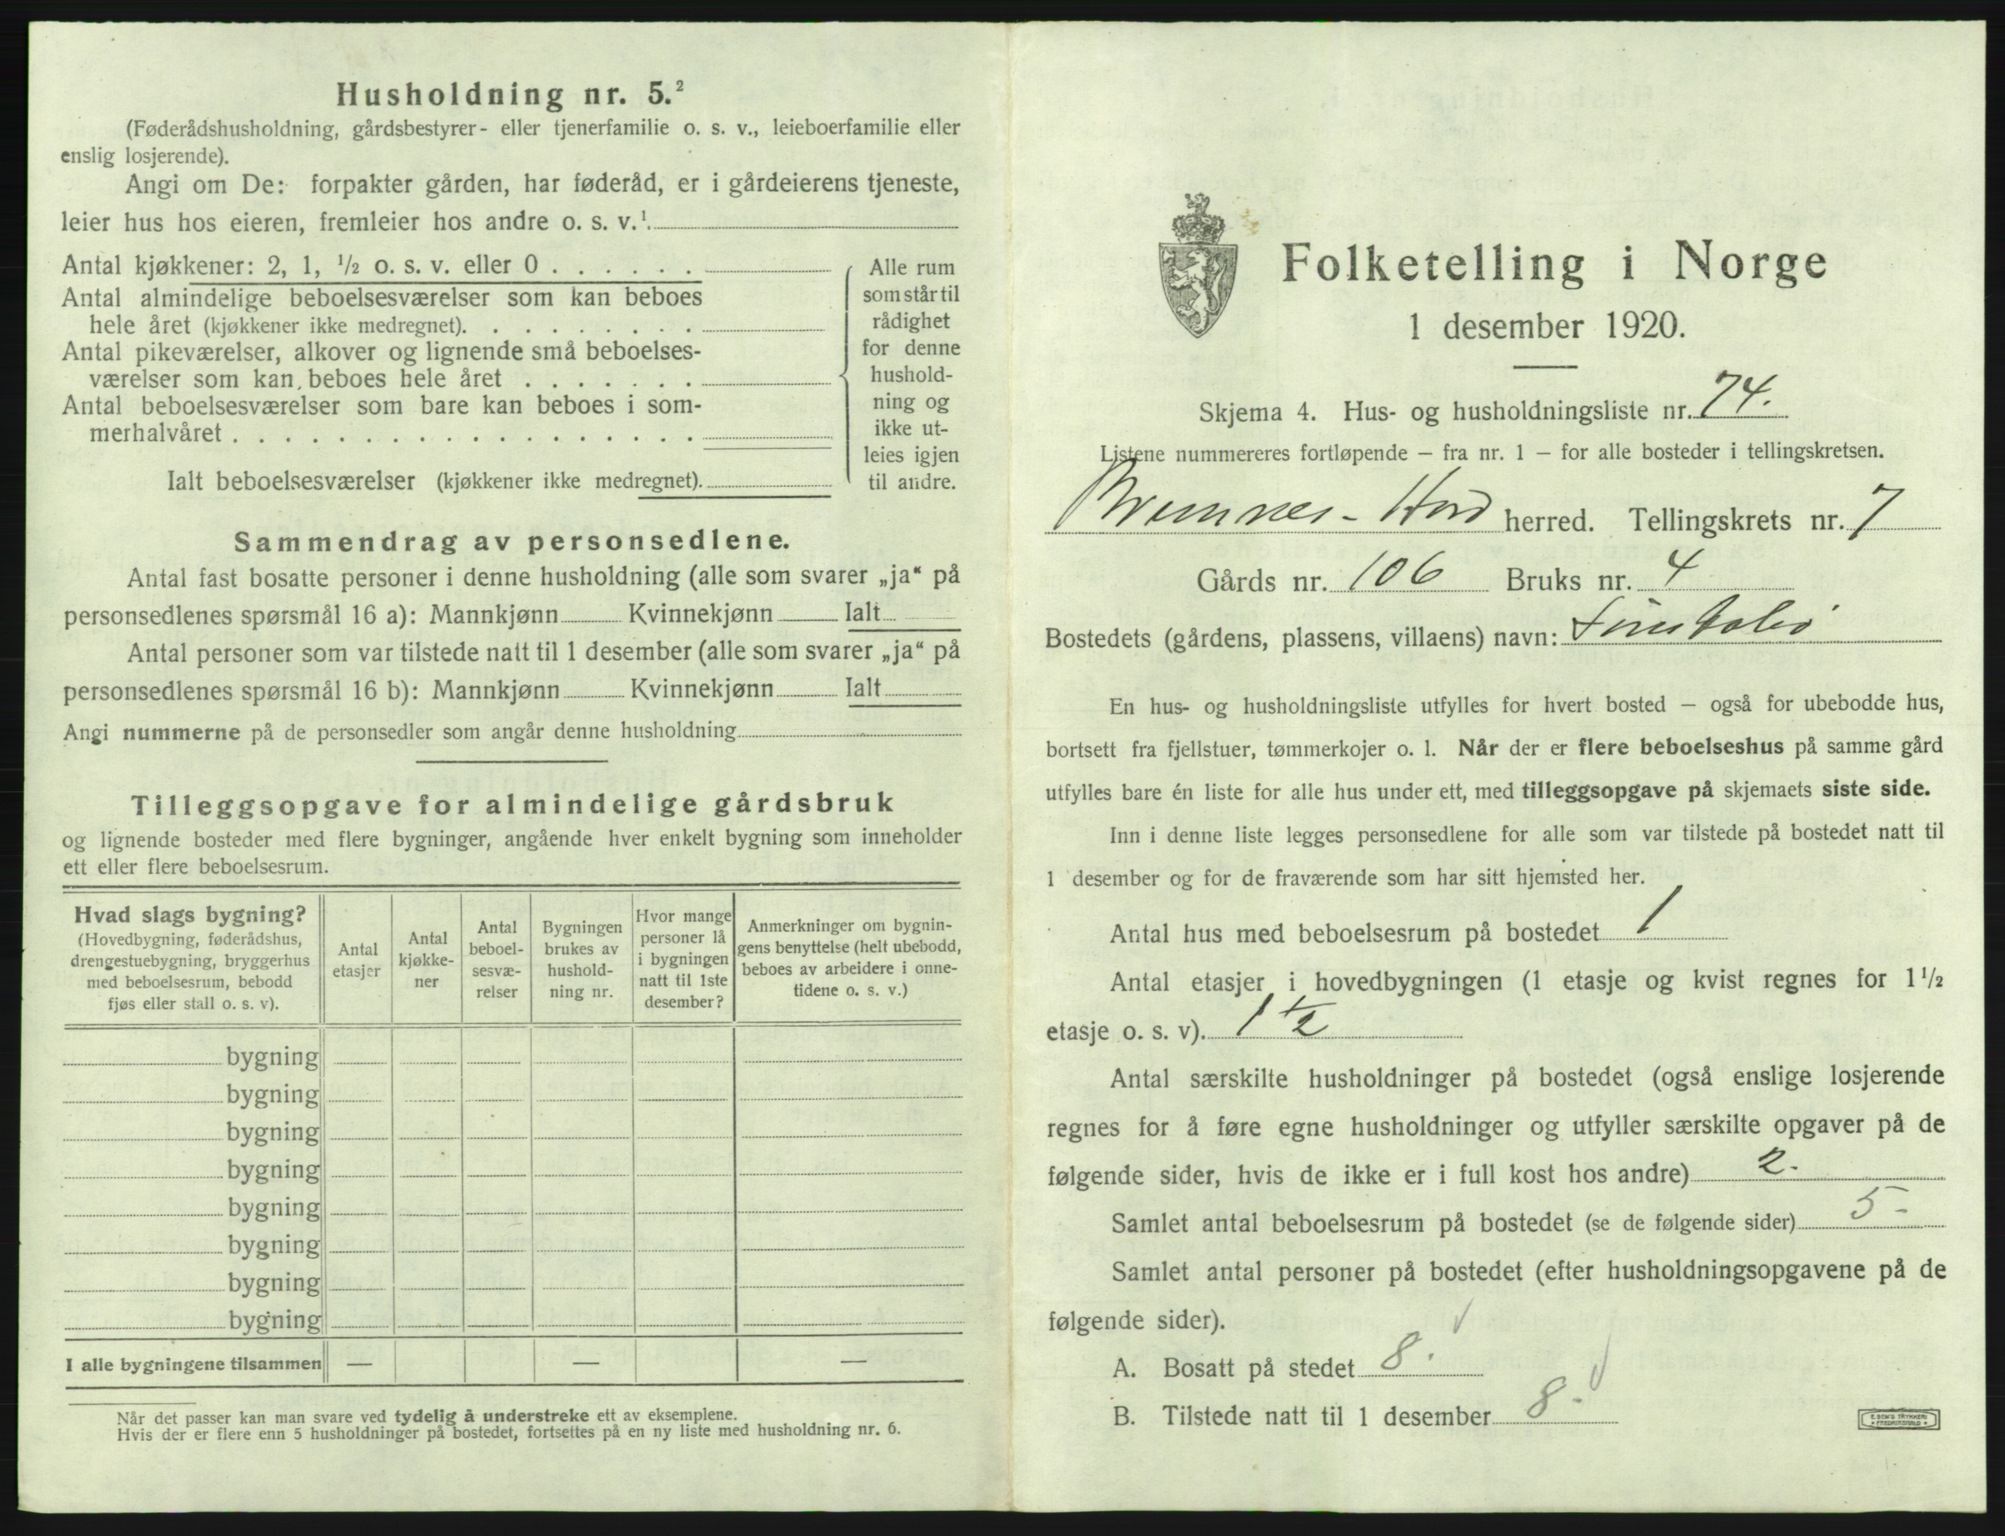 Husholdning nr. 5.²
(Føderådshusholdning, gårdsbestyrer- eller tjenerfamilie o. s. v., leieboerfamilie eller
enslig losjerende).
Angi om De: forpakter gården, har føderåd, er i gårdeierens tjeneste,
leier hus hos eieren, fremleier hos andre o. s. v.¹
Antal kjøkkener: 2, 1, ½ o. s. v. eller 0 . . . . . .
Antal almindelige beboelsesværelser som kan beboes
hele året (kjøkkener ikke medregnet). . . . . . . . .
Antal pikeværelser, alkover og lignende små beboelses-
værelser som kan beboes hele året . . . . . . .
Antal beboelsesværelser som bare kan beboes i som-
merhalvåret . . . . . . . . . . . . . . . . . .
Ialt beboelsesværelser (kjøkkener ikke medregnet).
Alle rum
som står til
rådighet
for denne
hushold-
ning og
ikke ut-
leies igjen
til andre.
Sammendrag av personsedlene.
Antal fast bosatte personer i denne husholdning (alle som svarer „ja“ på
personsedlenes spørsmål 16 a): Mannkjønn Kvinnekjønn Ialt
Antal personer som var tilstede natt til 1 desember (alle som svarer „ja“ på
personsedlenes spørsmål 16 b): Mannkjønn Kvinnekjønn Ialt
Angi nummerne på de personsedler som angår denne husholdning
Tilleggsopgave for almindelige gårdsbruk
og lignende bosteder med flere bygninger, angående hver enkelt bygning som inneholder
ett eller flere beboelsesrum.
Hvad slags bygning?
(Hovedbygning, føderådshus,
drengestuebygning, bryggerhus
med beboelsesrum, bebodd
fjøs eller stall o. s. v).
Antal
etasjer
Antal
kjøkke-
ner
Antal
beboel-
sesvæ-
relser
Bygningen
brukes av
hushold-
ning nr.
Hvor mange
personer lå
i bygningen
natt til 1ste
desember?
Anmerkninger om bygnin-
gens benyttelse (helt ubebodd,
beboes av arbeidere i onne-
tidene o. s. v.)
bygning
bygning
bygning
bygning
bygning
bygning
bygning
bygning
I alle bygningene tilsammen — — —
Når det passer kan man svare ved tydelig å understreke ett av eksemplene.
Hvis der er flere enn 5 husholdninger på bostedet, fortsettes på en ny liste med husholdning nr. 6.
Folketelling i Norge
1 desember 1920.
Skjema 4. Hus- og husholdningsliste nr. 74.
Listene nummereres fortløpende — fra nr. 1 — for alle bosteder i tellingskretsen.
Bremnes - Hord herred. Tellingskrets nr. 7
Gårds nr. 106 Bruks nr. 4
Bostedets (gårdens, plassens, villaens) navn:
En hus- og husholdningsliste utfylles for hvert bosted — også for ubebodde hus,
bortsett fra fjellstuer, tømmerkojer o. l. Når der er flere beboelseshus på samme gård
utfylles bare én liste for alle hus under ett, med tilleggsopgave på skjemaets siste side.
Inn i denne liste legges personsedlene for alle som var tilstede på bostedet natt til
1 desember og for de fraværende som har sitt hjemsted her.
Antal hus med beboelsesrum på bostedet 1
Antal etasjer i hovedbygningen (1 etasje og kvist regnes for 1½
etasje o. s. v). 1½
Antal særskilte husholdninger på bostedet (også enslige losjerende
regnes for å føre egne husholdninger og utfyller særskilte opgaver på de
følgende sider, hvis de ikke er i full kost hos andre) 2.
Samlet antal beboelsesrum på bostedet (se de følgende sider) 5 -
Samlet antal personer på bostedet (efter husholdningsopgavene på de
følgende sider).
A. Bosatt på stedet 8.
B. Tilstede natt til 1 desember 8.